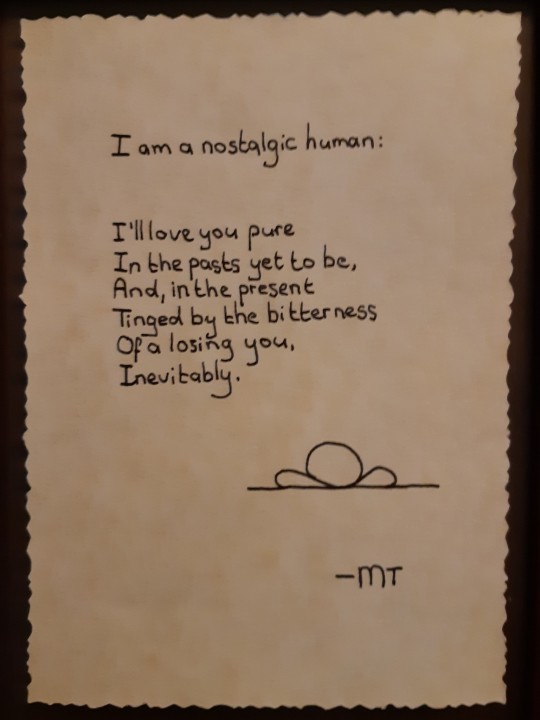 I am a nostalgic human:
I'll love you pure
In the pasts yet to be,
And, in the present
Tinged by the bitterness
Of a losing you,
Inevitably.
-MT